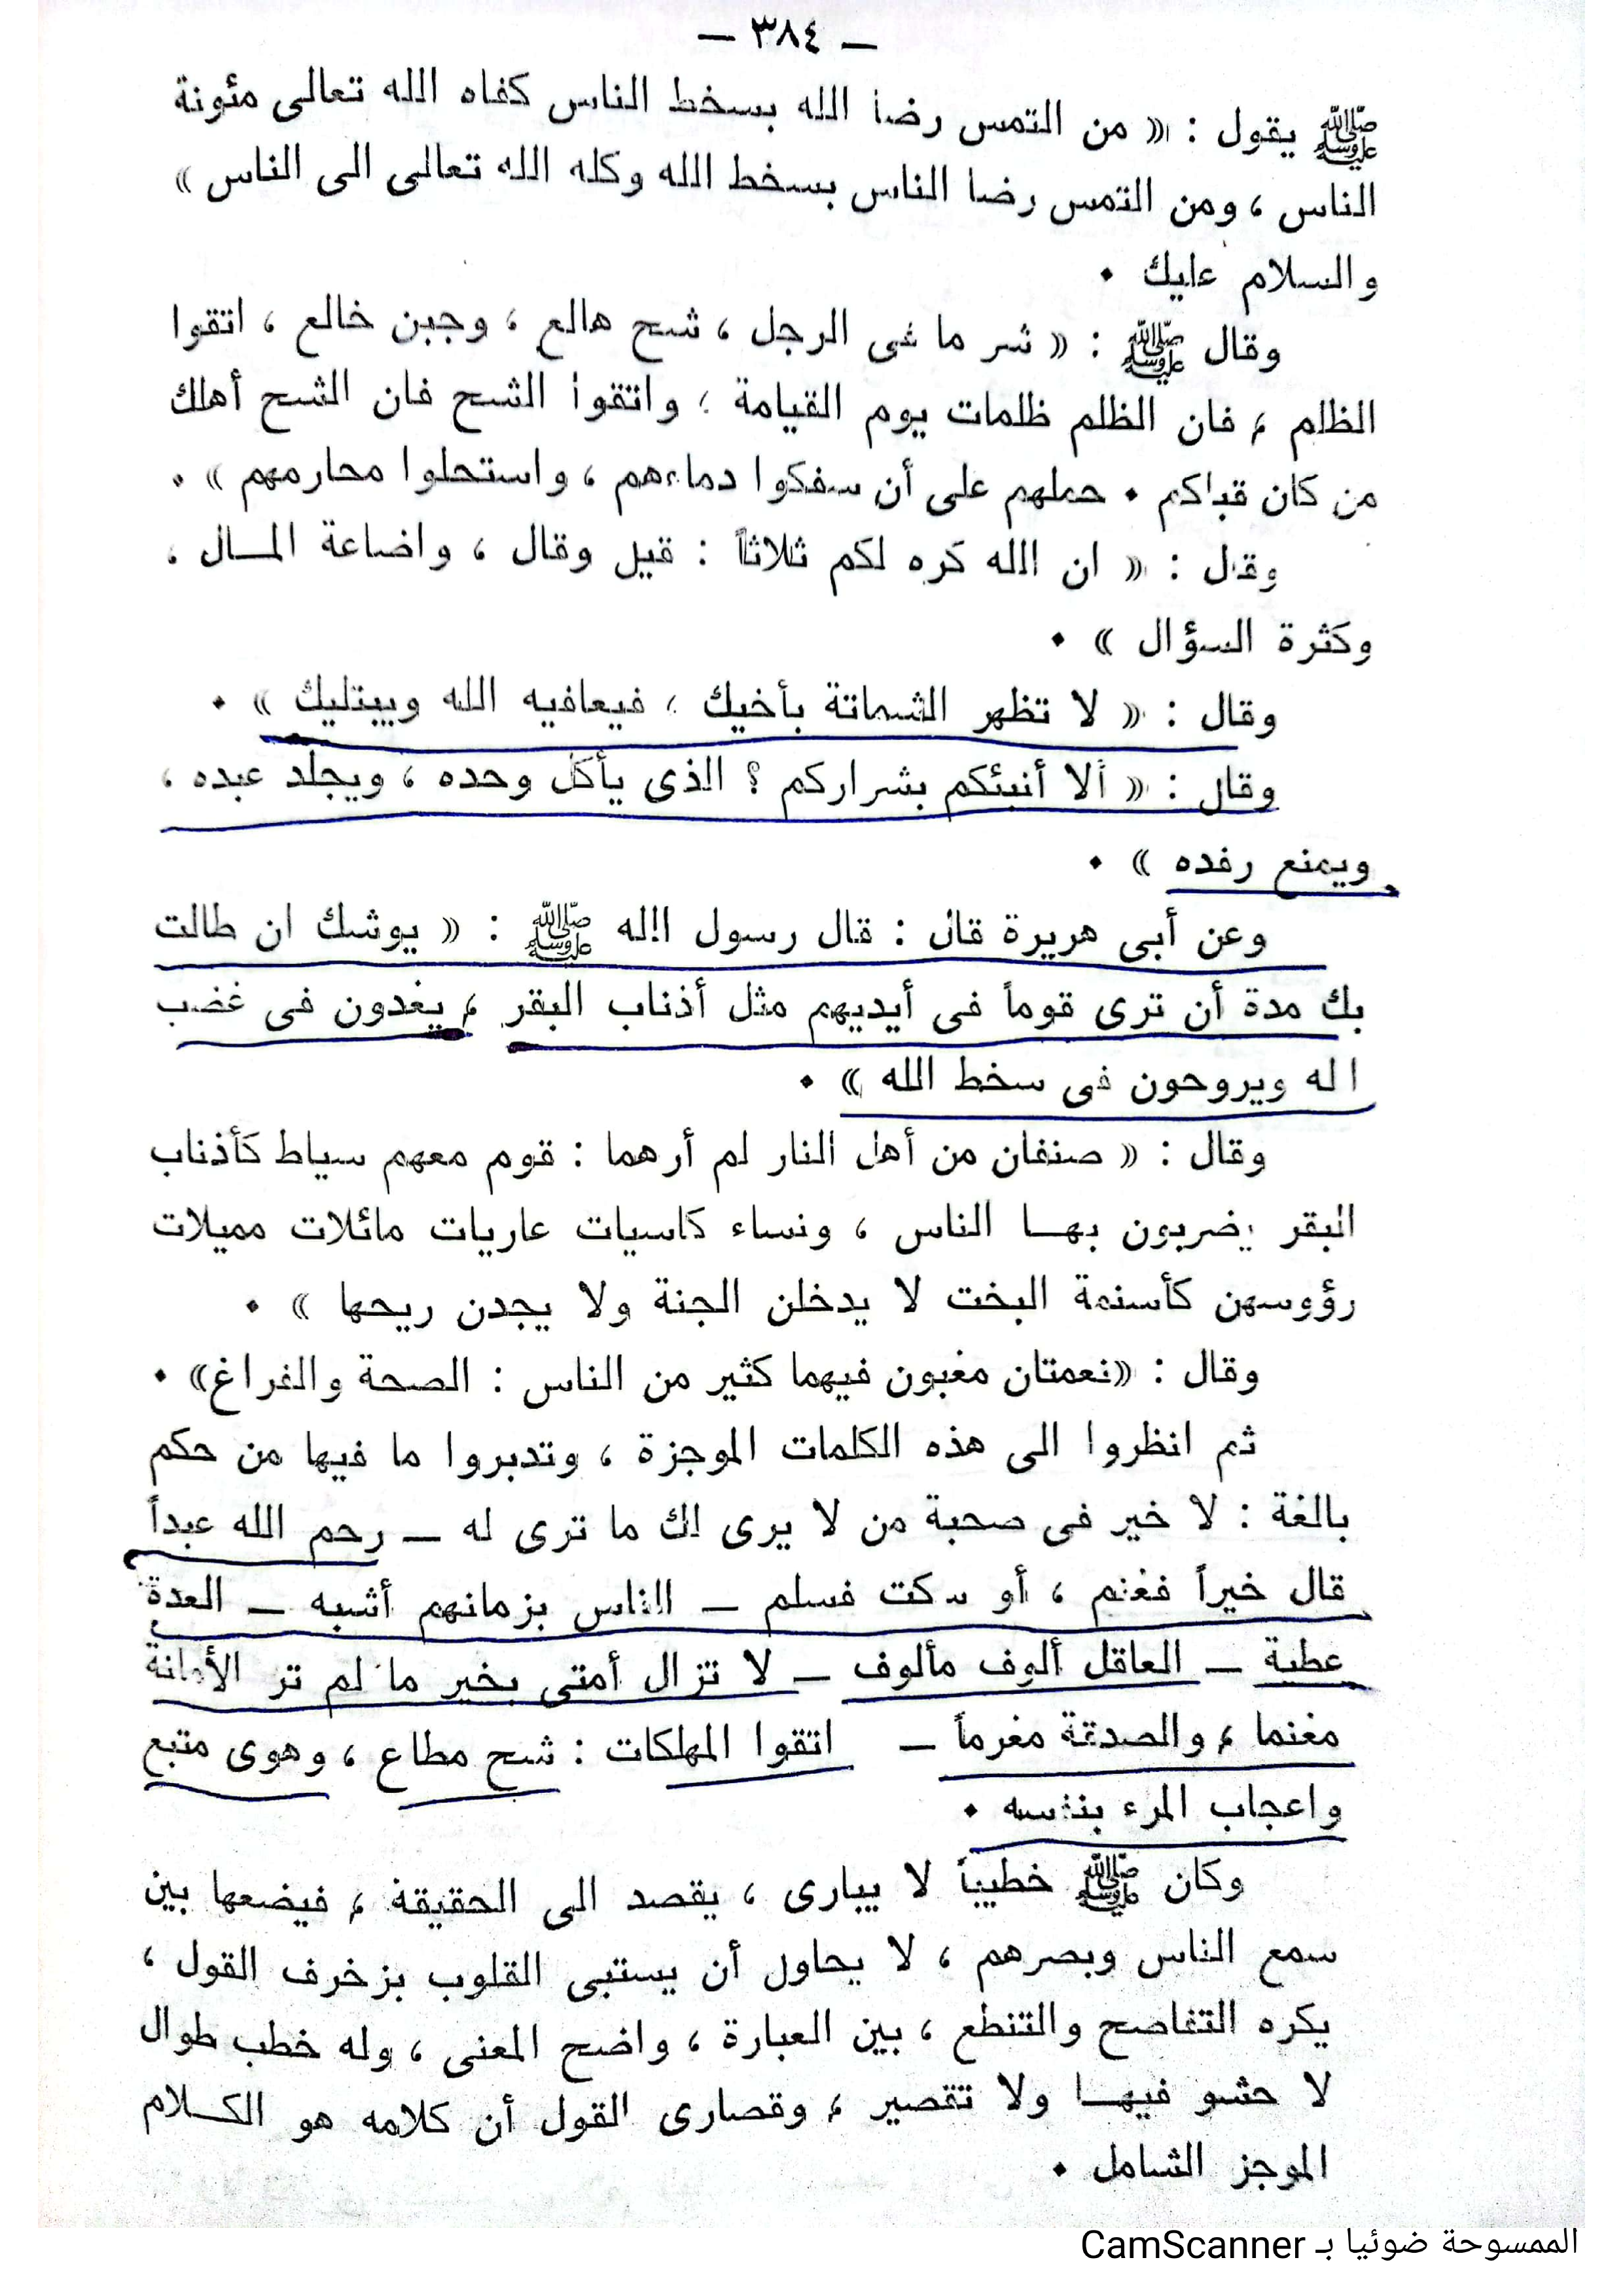 — ٣٨٤ —
ﷺ يقول : « من التمس رضا الله بسخط الناس كفاه الله تعالى مئونة
الناس ، ومن التمس رضا الناس بسخط الله وكله الله تعالى الى الناس »
والسلام عليك .
وقال ﷺ : « شر ما فى الرجل ، شح هالع ، وجبن خالع ، اتقوا
الظلم ، فان الظلم ظلمات يوم القيامة ، واتقوا الشح فان الشح أهلك
من كان قبلكم . حملهم على أن سفكوا دماءهم ، واستحلوا محارمهم » .
وقال : « ان الله كره لكم ثلاثاً : قيل وقال ، واضاعة المال ،
وكثرة السؤال » .
وقال : « لا تظهر الشماتة بأخيك ، فيعافيه الله ويبتليك » .
وقال : « ألا أنبئكم بشراركم ؟ الذى يأكل وحده ، ويجلد عبده ،
ويمنع رفده » .
وعن أبى هريرة قال : قال رسول الله ﷺ : « يوشك ان طالت
بك مدة أن ترى قوماً فى أيديهم مثل أذناب البقر ، يغدون فى غضب
الله ويروحون فى سخط الله » .
وقال : « صنفان من أهل النار لم أرهما : قوم معهم سياط كأذناب
البقر يضربون بها الناس ، ونساء كاسيات عاريات مائلات مميلات
رؤوسهن كأسنمة البخت لا يدخلن الجنة ولا يجدن ريحها » .
وقال : «نعمتان مغبون فيهما كثير من الناس : الصحة والفراغ» .
ثم انظروا الى هذه الكلمات الموجزة ، وتدبروا ما فيها من حكم
بالغة : لا خير فى صحبة من لا يرى لك ما ترى له — رحم الله عبداً
قال خيراً فغنم ، أو سكت فسلم — الناس بزمانهم أشبه — العدة
عطية — العاقل ألوف مألوف — لا تزال أمتى بخير ما لم تر الأمانة
مغنما ، والصدقة مغرماً — اتقوا المهلكات : شح مطاع ، وهوى متبع
واعجاب المرء بنفسه .
وكان ﷺ خطيباً لا يبارى ، يقصد الى الحقيقة ، فيضعها بين
سمع الناس وبصرهم ، لا يحاول أن يستبى القلوب بزخرف القول ،
يكره التفاصح والتنطع ، بين العبارة ، واضح المعنى ، وله خطب طوال
لا حشو فيها ولا تقصير ، وقصارى القول أن كلامه هو الكلام
الموجز الشامل .
الممسوحة ضوئيا بـ CamScanner